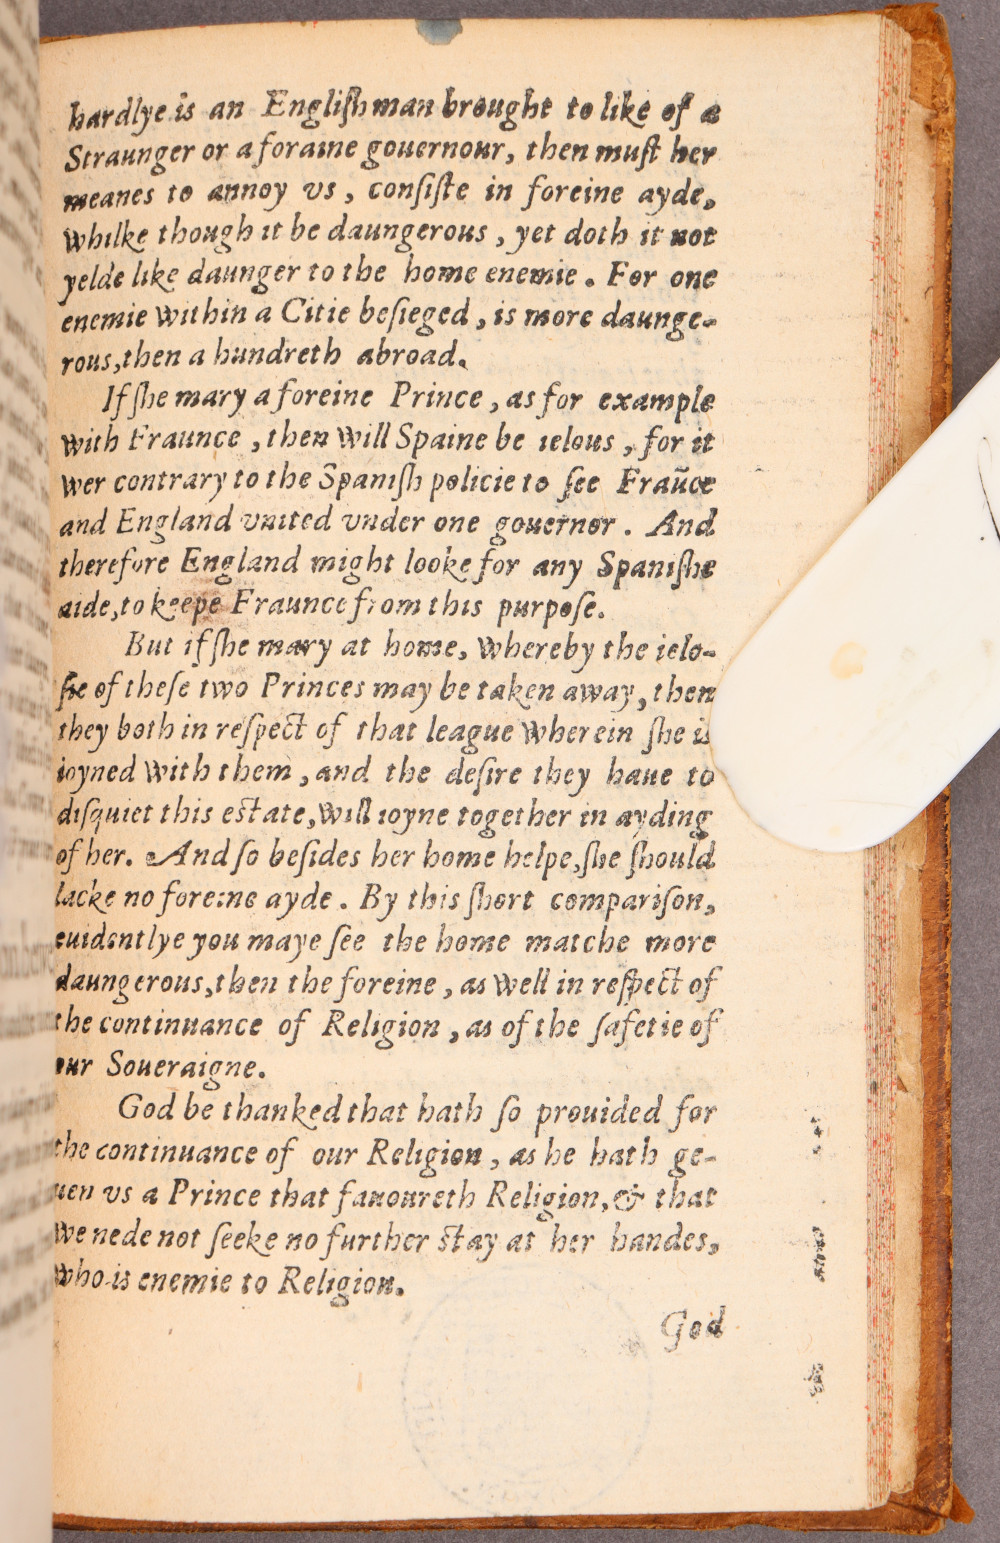 hardlye is an Engliſhman brought to like of a
Straunger or a foraine gouernour, then muſt her
meanes to annoy vs, conſiſte in foreine ayde,
Whilke though it be daungerous, yet doth it not
yelde like daunger to the home enemie. For one
enemie within a Citie beſieged, is more daunge-
rous, then a hundreth abroad.
If ſhe mary a foreine Prince, as for example
with Fraunce, then will Spaine be ielous, for it
wer contrary to the Spaniſh policie to ſee Fraũce
and England vnited vnder one gouernor. And
therefore England might looke for any Spaniſhe
aide, to keepe Fraunce from this purpoſe.
But if ſhe mary at home, whereby the ielo-
ſie of theſe two Princes may be taken away, then
they both in reſpect of that league wherein ſhe is
ioyned with them, and the deſire they haue to
diſquiet this eſtate, will ioyne together in ayding
of her. And ſo beſides her home helpe, ſhe ſhould
lacke no foreine ayde. By this ſhort compariſon,
euidentlye you maye ſee the home matche more
daungerous, then the foreine, as well in reſpect of
the continuance of Religion, as of the ſafetie of
our Soueraigne.
God be thanked that hath ſo prouided for
the continuance of our Religion, as he hath ge-
uen vs a Prince that fauoureth Religion, & that
we nede not ſeeke no further ſtay at her handes,
who is enemie to Religion.
God